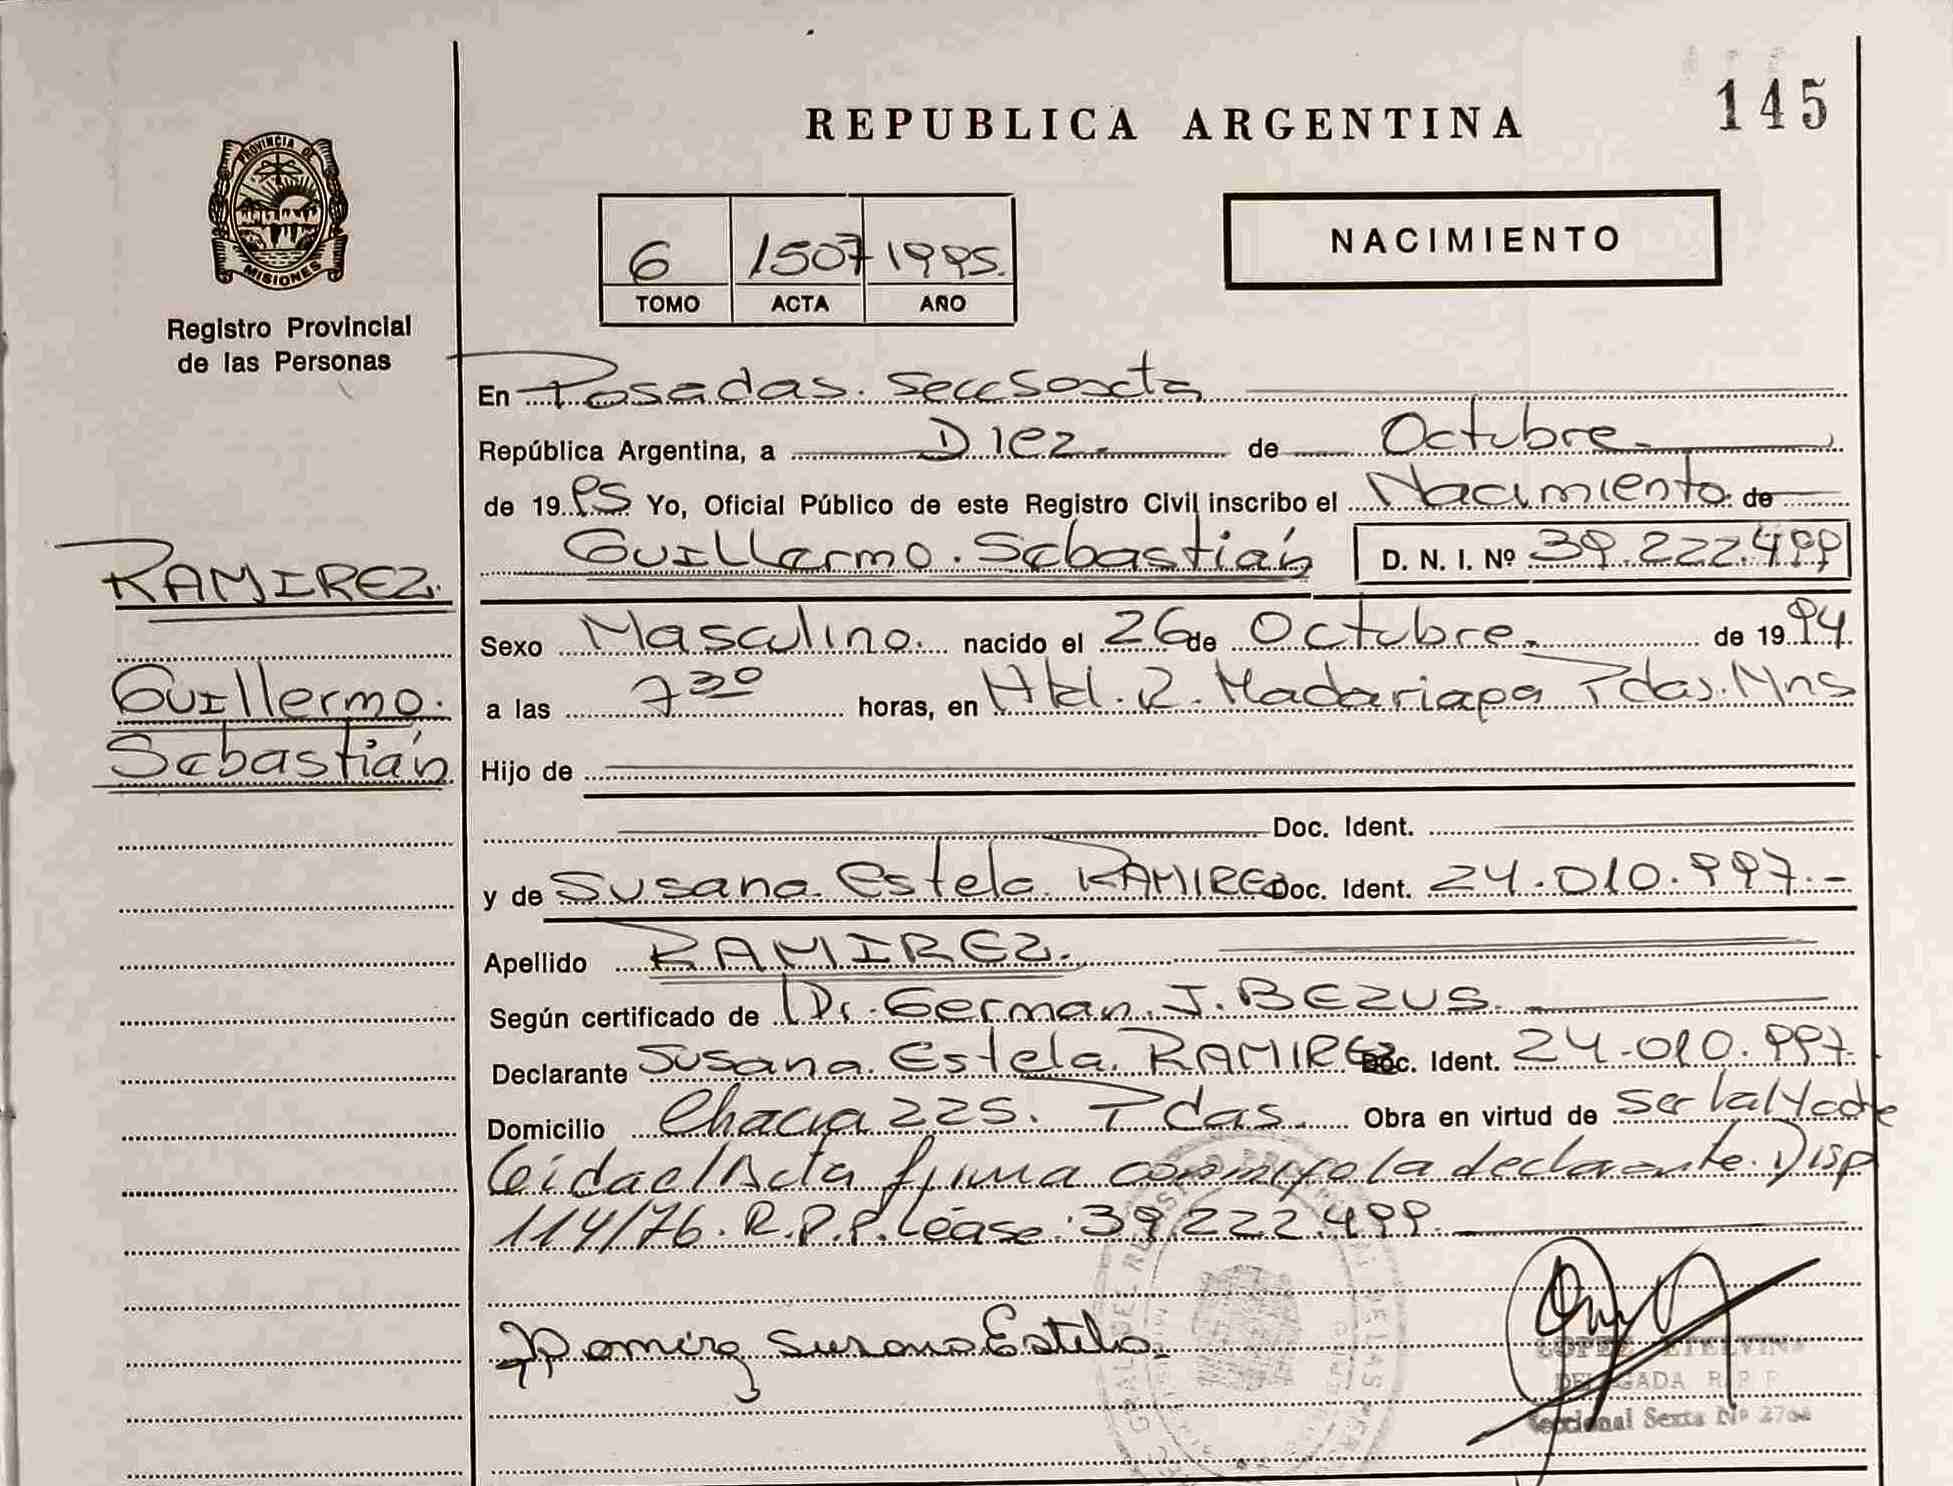 145
REPUBLICA ARGENTINA
PROVINCIA DE
MISIONES
Registro Provincial
de las Personas
NACIMIENTO
6 1507 1995.
TOMO ACTA AÑO
En Posadas. Secc Sexta
República Argentina, a Diez de Octubre
de 1995 Yo, Oficial Público de este Registro Civil inscribo el Nacimiento de
Guillermo. Sebastián D. N. I. Nº 39.222.499
RAMIREZ.
Guillermo.
Sebastián
Sexo Masculino. nacido el 26 de Octubre. de 1994.
a las 7 30 horas, en Htal. R. Madariaga Pdas. Mns
Hijo de
Doc. Ident.
y de Susana. Estela. RAMIREZ Doc. Ident. 24.010.997.-
Apellido RAMIREZ.
Según certificado de Dr. German. J. BEZUS.
Declarante Susana. Estela. RAMIREZ Doc. Ident. 24.010.997.
Domicilio Chacra 225. Pdas. Obra en virtud de Ser la Madre
Leida el Acta firma conmigo la declarante. Disp
114/76. R.P.P. Léase: 39.222.499.
Ramirez Susana Estela.
LOPEZ ETELVINA
DELEGADA R.P.P.
Seccional Sexta Nº